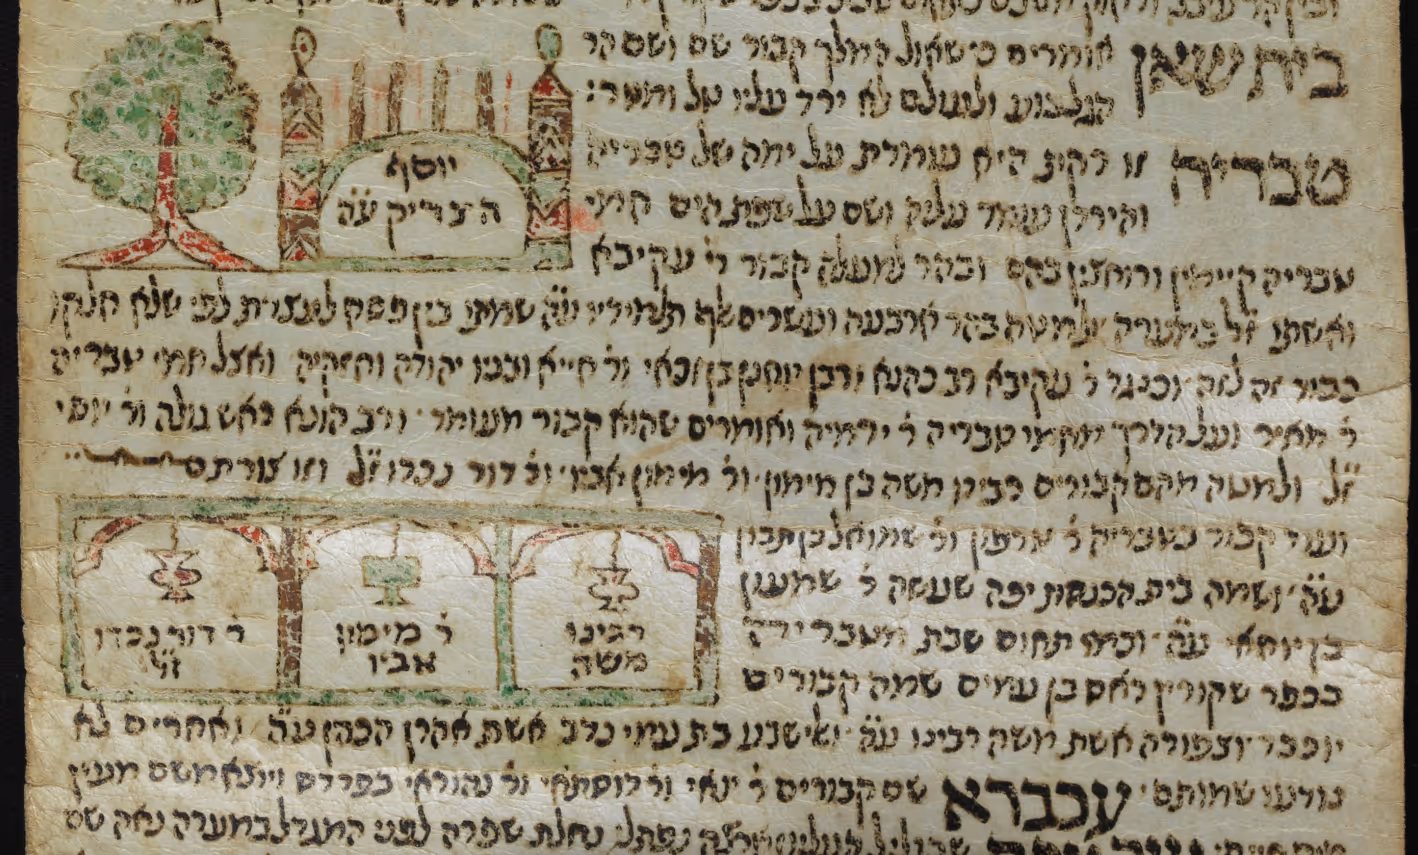 בית שאן אומרים כי שאול המלך קבור שם ושם הר
הגלבוע ולעולם לא ירד עליו טל ומטר:
טבריה זו רקת היא עומדת על ימה של טבריה
והירדן עומד עליה ושם על שפת הים חמי
יוסף
הצדיק ע״ה
טבריה קיימין ורוחצין בהם ובהר למעלה קבור ר׳ עקיבא
ואשתו ז״ל במערה ולמטה בהר ארבעה ועשרים אלף תלמידיו ע״ה שמתו בין פסח לעצרת לפי שלא חלקו
כבוד זה לזה וכנגד ר׳ עקיבא רב כהנא ורבן יוחנן בן זכאי ור׳ חייא ובניו יהודה וחזקיה ואצל חמי טבריה
ר׳ מאיר ועל הדרך מחמי טבריה ר׳ ירמיה ואומרים שהוא קבור מעומד ורב הונא ראש גולה ור׳ יוסי
ז״ל ולמטה מהם קבורים רבינו משה בן מימון ור׳ מימון אביו ור׳ דוד נכדו ז״ל וזו צורתם
ועוד קבור בטבריה ר׳ טרפון ור׳ שמואל בן תבון
ע״ה ושמה בית הכנסת יפה שעשה ר׳ שמעון
בן יוחאי ע״ה וכמו תחום שבת מעבר ירדן
בכפר שקורין ראס בן עמים שמה קבורים
רבינו
משה
ר׳ מימון
אביו
ר׳ דוד נכדו
ז״ל
יוכבד וצפורה אשת משה רבינו ע״ה ואלישבע בת עמינדב אשת אהרן הכהן ע״ה ואחרים לא
נודעו שמותם עכברא שם קבורים ר׳ ינאי ור׳ דוסתאי ור׳ נהוראי בפרדס ויוצא משם מעין
נחלת שפרה לפני המגדל במערה נאה שם